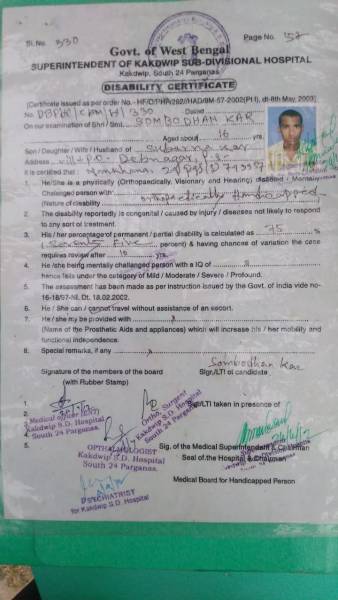 Sl.No. 330 Page No. 152
Govt. of West Bengal
SUPERINTENDENT OF KAKDWIP SUB-DIVISIONAL HOSPITAL
Kakdwip, South 24 Parganas
DISABILITY CERTIFICATE
(Certificate issued as per order No.-HF/O/PHP/282/HAD/8M-57-2002(Pt I), dt-8th May, 2003)
No. 330 Dated
On our examination of Shri / Smt. SOMBODHAN KAR
Aged about 16 yrs.
Son / Daughter / Wife / Husband of Kar
Address Vill+P.O- Debnagar, P.S-
It is certified that
1. He/She is a physically (Orthopaedically, Visionary and Hearing) disabled - Mentally
Challenged person with Orthopaedically Handicapped
(Nature of disability
2. The disability reportedly is congenital / caused by injury / diseases not likely to respond
to any sort of treatment.
3. His / her percentage of permanent / partial disability is calculated as 75 %
( Seventy Five percent) & having chances of variation the case
requires review after 10 yrs.
4. He /she being mentally challenged person with a IQ of
hence falls under the category of Mild / Moderate / Severe / Profound.
5. The assessment has been made as per instruction issued by the Govt. of India vide no-
16-18/97-NI. Dt. 18.02.2002.
6. He / She can / cannot travel without assistance of an escort.
7. He / she my be provided with x
(Name of the Prosthetic Aids and appliances) which will increase his / her mobility and
functional independence.
8. Special remarks, if any x
Sombodhan Kar
Signature of the members of the board Sign./LTI of candidate
(with Rubber Stamp)
1.
2. Sign/LTI taken in presence of
3. Medical officer
Kakdwip S.D. Hospital
4. South 24 Parganas.
Ortho. Surgeon
Kakdwip S.D. Hospital
South 24 Parganas
5. OPTHALMOLOGIST
Kakdwip S.D. Hospital
South 24 Parganas.
Sig. of the Medical Superintendent & Chairman
Seal of the Hospital & Chairman
PSYCHIATRIST
for Kakdwip S.D. Hospital
Medical Board for Handicapped Person